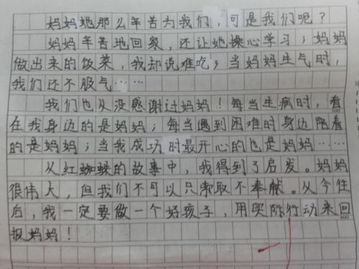 妈妈她那么辛苦为我们,可是我们呢?
妈妈辛苦地回家,还让她操心学习;妈妈
做出来的饭菜,我却说难吃;当妈妈生气时,
我们还不服气……
我们也从没感谢过妈妈!每当生病时,看
在我身边的是妈妈;每当遇到困难时身边陪着
的是妈妈;当我成功时最开心的也是妈妈……
从红蜘蛛的故事中,我得到了启发。妈妈
很伟大,但我们不可以只索取不奉献。从今往
后,我一定要做一个好孩子,用实际行动来回
报妈妈!